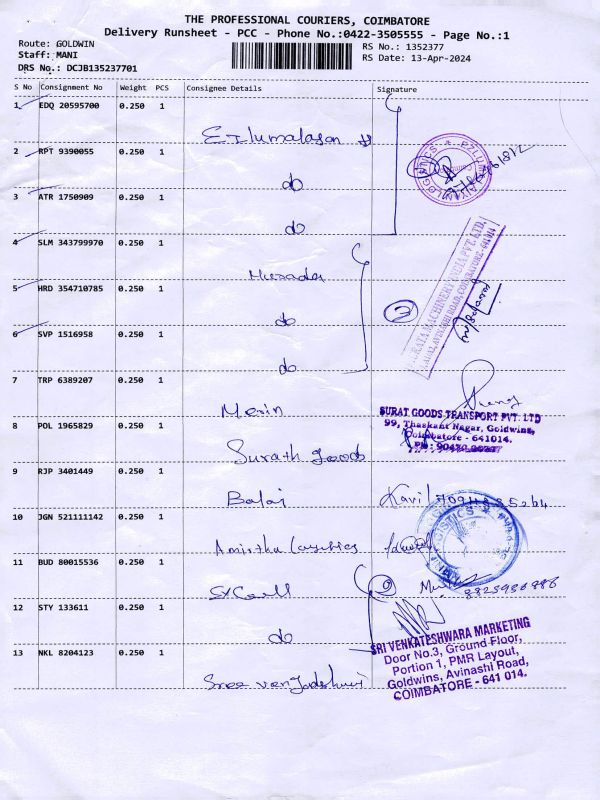 THE PROFESSIONAL COURIERS, COIMBATORE
Delivery Runsheet - PCC - Phone No.:0422-3505555 - Page No.:1
Route: GOLDWIN
Staff: MANI
DRS No.: DCJB135237701
RS No.: 1352377
RS Date: 13-Apr-2024
S No Consignment No Weight PCS Consignee Details Signature
1 EDQ 20595700 0.250 1
2 RPT 9390055 0.250 1 do
3 ATR 1750909 0.250 1 do
4 SLM 343799970 0.250 1
5 HRD 354710785 0.250 1 do
6 SVP 1516958 0.250 1 do
7 TRP 6389207 0.250 1 Merin
8 POL 1965829 0.250 1 Surath goods
SURAT GOODS TRANSPORT PVT. LTD
99, Thaskant Nagar, Goldwins,
Coimbatore - 641014.
9 RJP 3401449 0.250 1 Balaj
10 JGN 521111142 0.250 1 Amirtha
11 BUD 80015536 0.250 1
12 STY 133611 0.250 1 do
13 NKL 8204123 0.250 1 Sree
SRI VENKATESHWARA MARKETING
Door No.3, Ground Floor,
Portion 1, PMR Layout,
Goldwins, Avinashi Road,
COIMBATORE - 641 014.